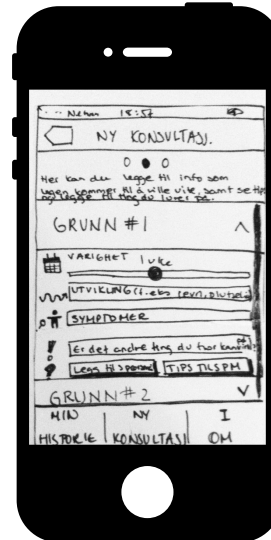 18:57
NY KONSULTASJ.
Her kan du legge til info som
legen kommer til å ville vite, samt se tips
og legge til ting du lurer på.
GRUNN #1
VARIGHET 1 uke
UTVIKLING (f.eks jevn,
SYMPTOMER
Er det andre ting du tror kan
Legg til TIPS TIL SPM
GRUNN #2
MIN NY I
HISTORIE KONSULTASJ OM